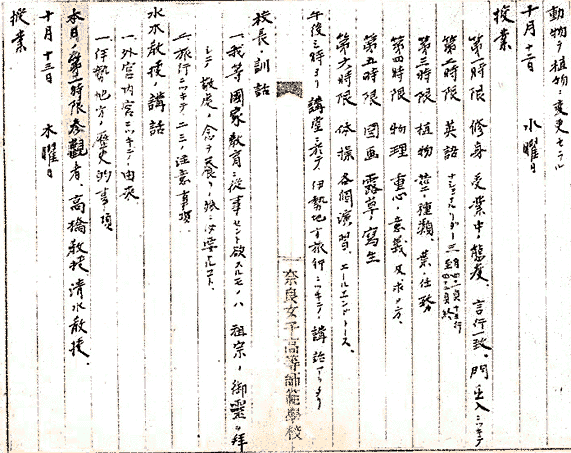 動物ヲ植物ニ変更セラル
十月十二日 水曜日
授業
第一時限 修身 受業中ノ態度、言行一致、門出入ニツキテ
第二時限 英語
第三時限 植物 茎ノ種類、葉ノ仕務
第四時限 物理 重心ノ意義及求メ方、
第五時限 図画 露草ノ寫生
第六時限 体操 各個演習、
午後三時ヨリ講堂ニ於テ伊勢地方旅行ニツキテノ講話アリタリ
校長訓話
一、我等國家教育ニ從事セント欲スルモノハ 祖宗ノ御靈ヲ拜
シテ敬虔ノ念ヲ養フノ必要ナルコト、
二、旅行ニツキテ二三ノ注意事項
水木教授講話
一、外宮内宮ニツキテノ由来
一、伊勢地方ノ歴史的事項
本日ノ第二時限参觀者、高橋教授 清水教授、
十月十三日 木曜日
授業
奈良女子高等師範學校